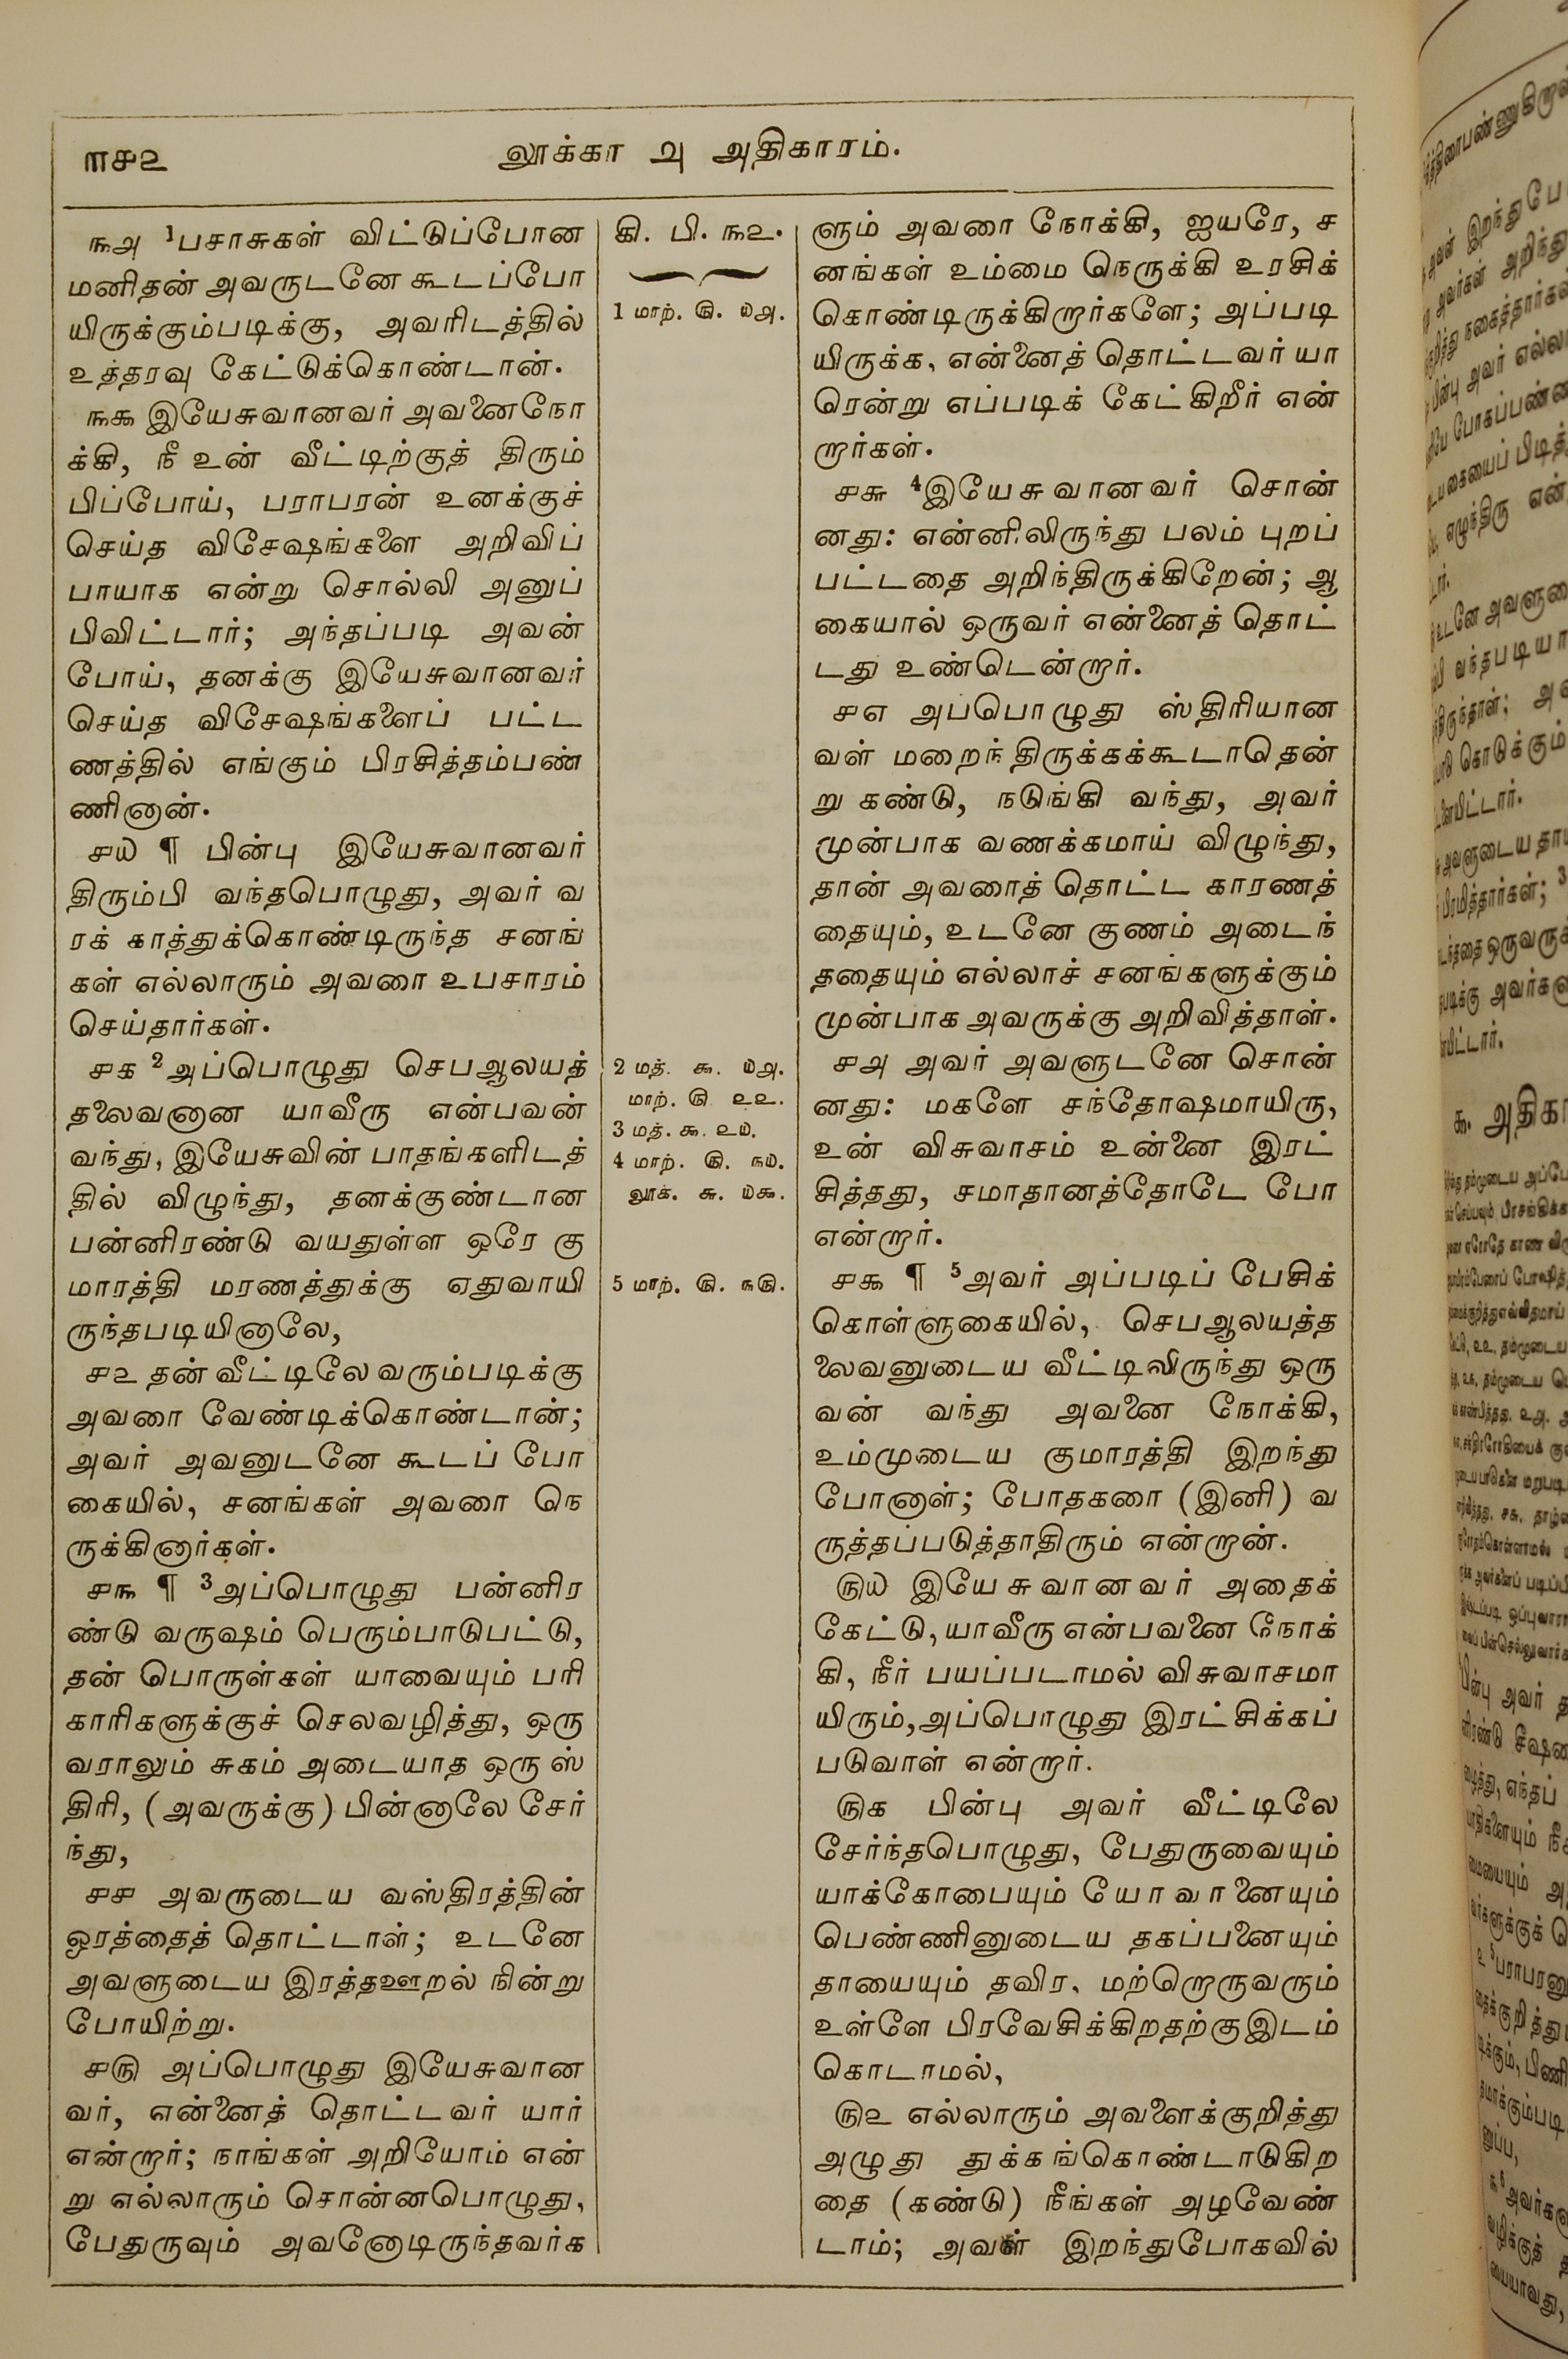 ௱௪௨
லூக்கா ௮ அதிகாரம்.
௩௮ ¹பசாசுகள் விட்டுப்போன
மனிதன் அவருடனே கூடப்போ
யிருக்கும்படிக்கு, அவரிடத்தில்
உத்தரவு கேட்டுக்கொண்டான்.
௩௯ இயேசுவானவர் அவனைநோ
க்கி, நீ உன் வீட்டிற்குத் திரும்
பிப்போய், பராபரன் உனக்குச்
செய்த விசேஷங்களை அறிவிப்
பாயாக என்று சொல்லி அனுப்
பிவிட்டார்; அந்தப்படி அவன்
போய், தனக்கு இயேசுவானவர்
செய்த விசேஷங்களைப் பட்ட
ணத்தில் எங்கும் பிரசித்தம்பண்
ணினான்.
௪௰ ¶ பின்பு இயேசுவானவர்
திரும்பி வந்தபொழுது, அவர் வ
ரக் காத்துக்கொண்டிருந்த சனங்
கள் எல்லாரும் அவரை உபசாரம்
செய்தார்கள்.
௪௧ ²அப்பொழுது செபஆலயத்
தலைவனான யாவீரு என்பவன்
வந்து, இயேசுவின் பாதங்களிடத்
தில் விழுந்து, தனக்குண்டான
பன்னிரண்டு வயதுள்ள ஒரே கு
மாரத்தி மரணத்துக்கு ஏதுவாயி
ருந்தபடியினாலே,
௪௨ தன் வீட்டிலே வரும்படிக்கு
அவரை வேண்டிக்கொண்டான்;
அவர் அவனுடனே கூடப் போ
கையில், சனங்கள் அவரை நெ
ருக்கினார்கள்.
௪௩ ¶ ³அப்பொழுது பன்னிர
ண்டு வருஷம் பெரும்பாடுபட்டு,
தன் பொருள்கள் யாவையும் பரி
காரிகளுக்குச் செலவழித்து, ஒரு
வராலும் சுகம் அடையாத ஒரு ஸ்
திரி, (அவருக்கு) பின்னாலே சேர்
ந்து,
௪௪ அவருடைய வஸ்திரத்தின்
ஓரத்தைத் தொட்டாள்; உடனே
அவளுடைய இரத்தஊறல் நின்று
போயிற்று.
௪௫ அப்பொழுது இயேசுவான
வர், என்னைத் தொட்டவர் யார்
என்றார்; நாங்கள் அறியோம் என்
று எல்லாரும் சொன்னபொழுது,
பேதுருவும் அவனோடிருந்தவர்க
கி. பி. ௩௨.
1 மாற். ௫. ௰௮.
2 மத். ௯. ௰௮.
மாற். ௫. ௨௨.
3 மத். ௯. ௨௰.
4 மாற். ௫. ௩௰.
லூக். ௬. ௰௯.
5 மாற். ௫. ௩௫.
ளும் அவரை நோக்கி, ஐயரே, ச
னங்கள் உம்மை நெருக்கி உரசிக்
கொண்டிருக்கிறார்களே; அப்படி
யிருக்க, என்னைத் தொட்டவர் யா
ரென்று எப்படிக் கேட்கிறீர் என்
றார்கள்.
௪௬ ⁴இயேசுவானவர் சொன்
னது: என்னிலிருந்து பலம் புறப்
பட்டதை அறிந்திருக்கிறேன்; ஆ
கையால் ஒருவர் என்னைத் தொட்
டது உண்டென்றார்.
௪௭ அப்பொழுது ஸ்திரியான
வள் மறைந்திருக்கக்கூடாதென்
று கண்டு, நடுங்கி வந்து, அவர்
முன்பாக வணக்கமாய் விழுந்து,
தான் அவரைத் தொட்ட காரணத்
தையும், உடனே குணம் அடைந்
ததையும் எல்லாச் சனங்களுக்கும்
முன்பாக அவருக்கு அறிவித்தாள்.
௪௮ அவர் அவளுடனே சொன்
னது: மகளே சந்தோஷமாயிரு,
உன் விசுவாசம் உன்னை இரட்
சித்தது, சமாதானத்தோடே போ
என்றார்.
௪௯ ¶ ⁵அவர் அப்படிப் பேசிக்
கொள்ளுகையில், செபஆலயத்த
லைவனுடைய வீட்டிலிருந்து ஒரு
வன் வந்து அவனை நோக்கி,
உம்முடைய குமாரத்தி இறந்து
போனாள்; போதகரை (இனி) வ
ருத்தப்படுத்தாதிரும் என்றான்.
௫௰ இயேசுவானவர் அதைக்
கேட்டு, யாவீரு என்பவனை நோக்
கி, நீர் பயப்படாமல் விசுவாசமா
யிரும், அப்பொழுது இரட்சிக்கப்
படுவாள் என்றார்.
௫௧ பின்பு அவர் வீட்டிலே
சேர்ந்தபொழுது, பேதுருவையும்
யாக்கோபையும் யோவானையும்
பெண்ணினுடைய தகப்பனையும்
தாயையும் தவிர, மற்றொருவரும்
உள்ளே பிரவேசிக்கிறதற்குஇடம்
கொடாமல்,
௫௨ எல்லாரும் அவளைக்குறித்து
அழுது துக்கங்கொண்டாடுகிற
தை (கண்டு) நீங்கள் அழவேண்
டாம்; அவள் இறந்துபோகவில்